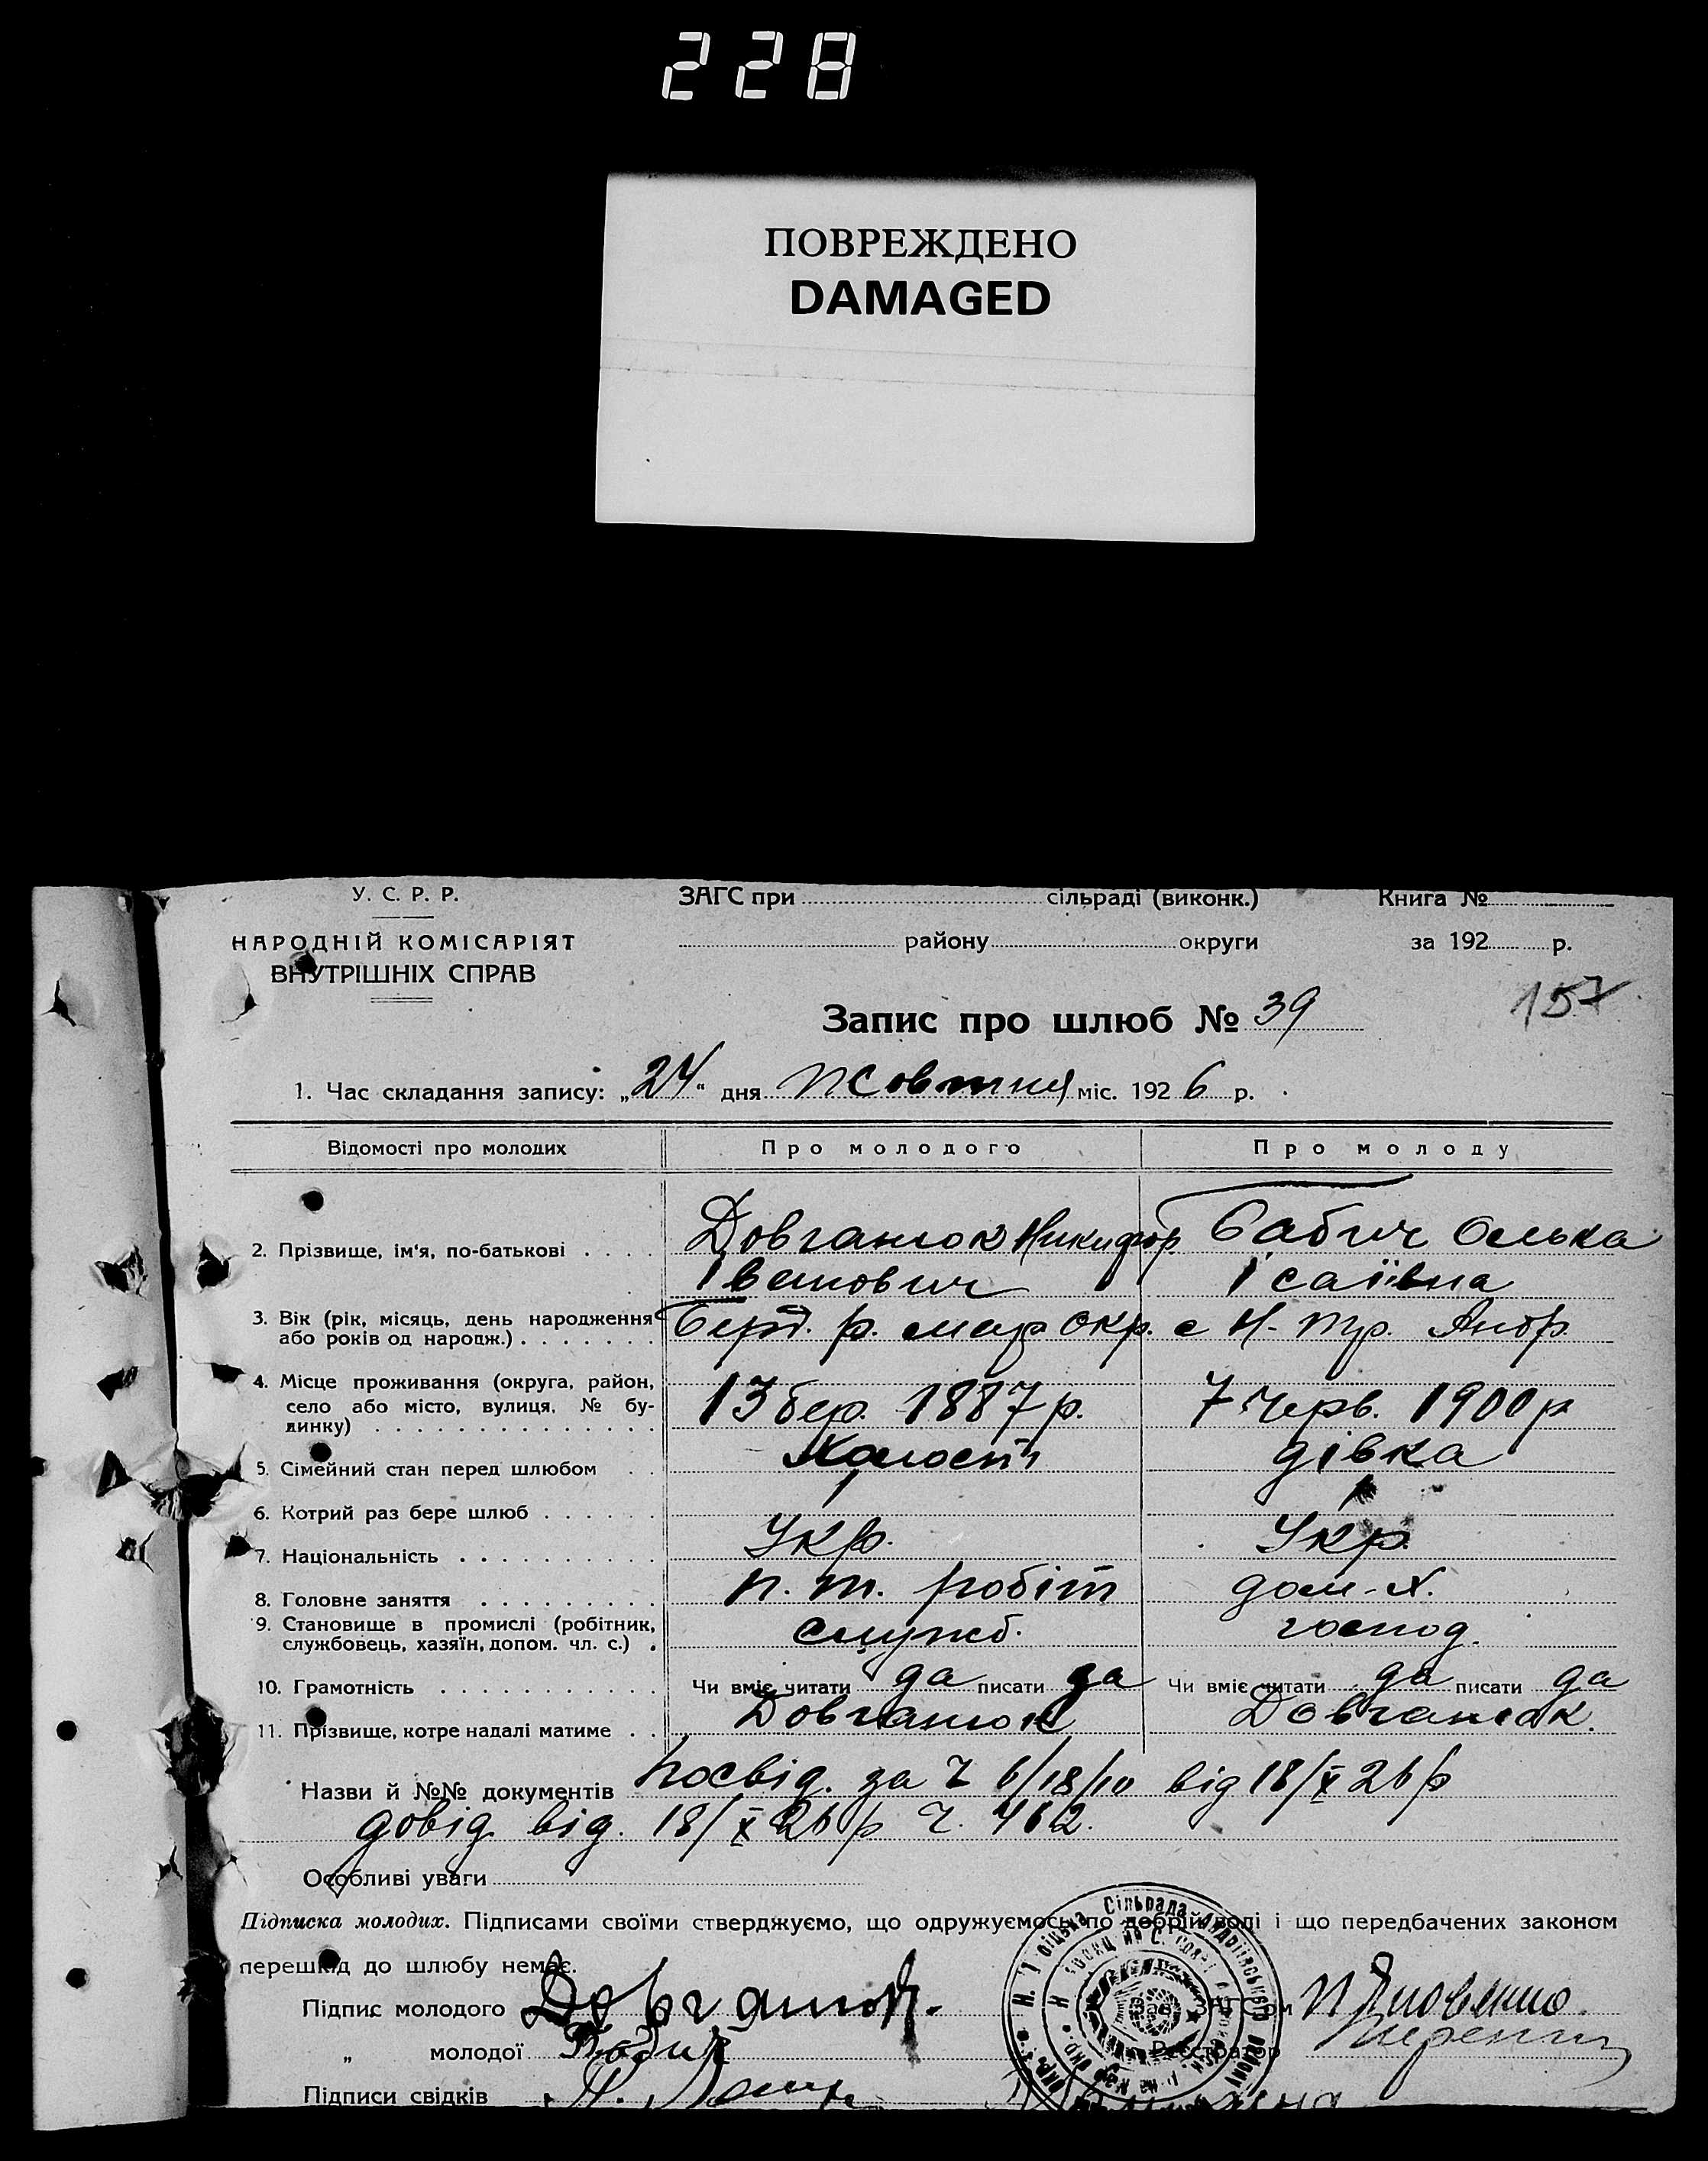 228
ПОВРЕЖДЕНО
DAMAGED
У. С. Р. Р.
НАРОДНІЙ КОМІСАРІЯТ
ВНУТРІШНІХ СПРАВ
ЗАГС при сільраді (виконк.)
району округи
Книга №
за 192 р.
157
Запис про шлюб № 39
1. Час складання запису: „24“ дня жовтня міс. 1926 р.
Відомості про молодих Про молодого Про молоду
2. Прізвище, ім'я, по-батькові Довганюк Никифор Бабич Олька
Іванович Ісаївна
3. Вік (рік, місяць, день народження р. окр. с Н-Тр.
або років од народж.)
4. Місце проживання (округа, район,
село або місто, вулиця, № бу- 13 бер. 1887 р. 7 черв. 1900 р
динку)
5. Сімейний стан перед шлюбом Холост дівка
6. Котрий раз бере шлюб
7. Національність Укр. Укр.
8. Головне заняття п. т. робіт дом-х.
9. Становище в промислі (робітник, служб. господ.
службовець, хазяїн, допом. чл. с.)
10. Грамотність Чи вміє читати да писати да Чи вміє читати да писати да
11. Прізвище, котре надалі матиме Довганюк Довганюк.
Назви й №№ документів посвід. за Ч 6/18/10 від 18/X 26 р
довід від. 18/X 26 р Ч. 462.
Особливі уваги
Підписка молодих. Підписами своїми стверджуємо, що одружуємось по добрій волі і що передбачених законом
перешкід до шлюбу немає.
Підпис молодого Довганюк.
„ молодої Бабич
Реєстратор
Підписи свідків